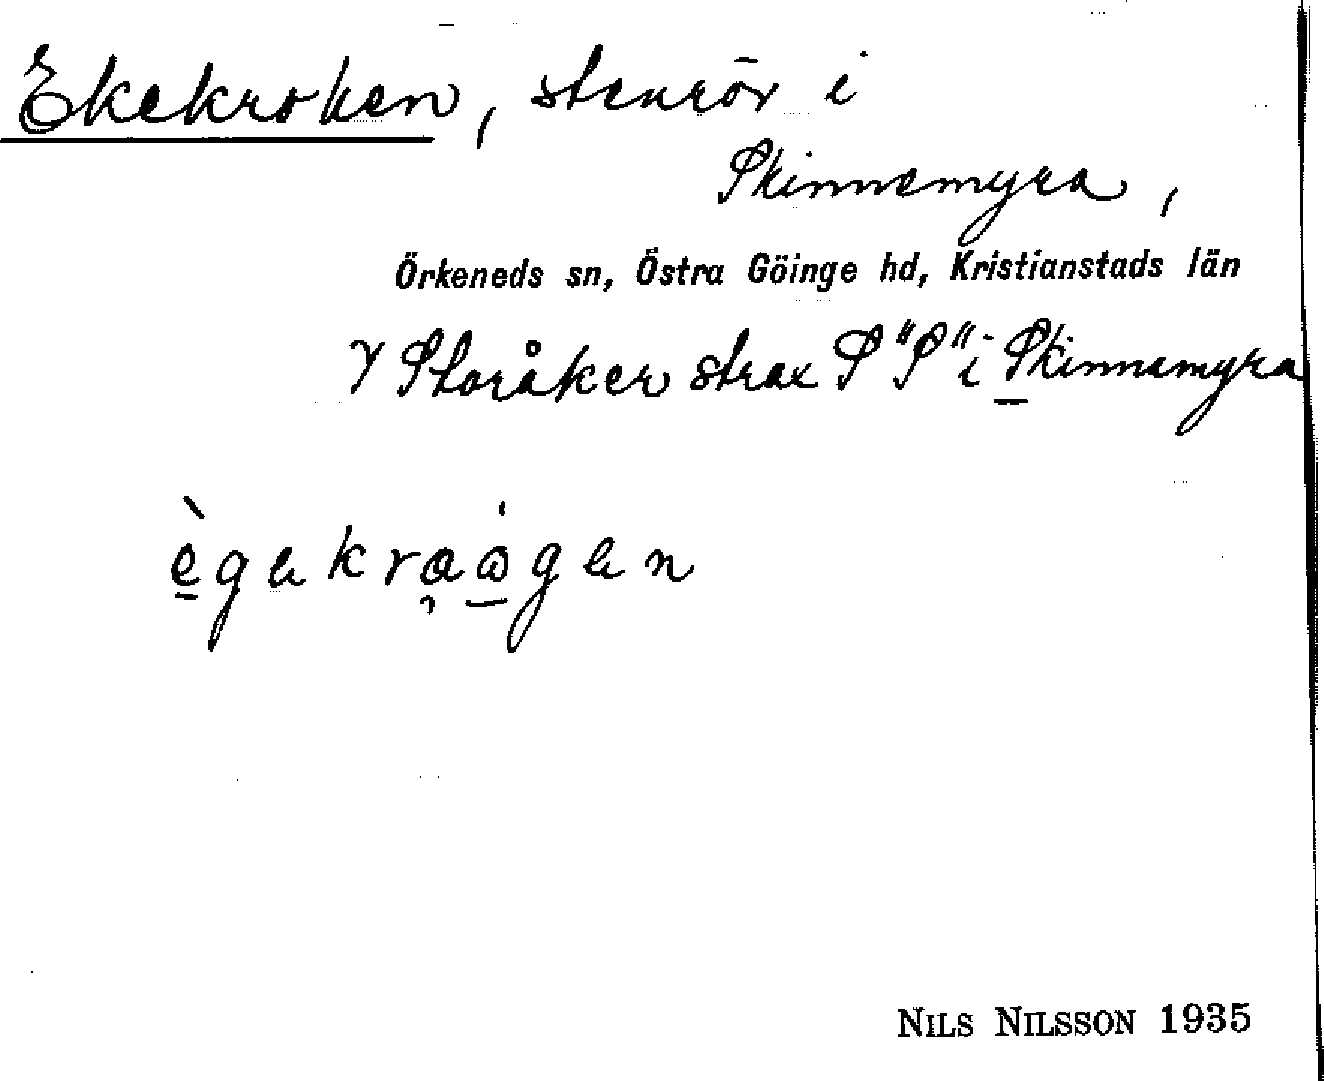 Ekekroken, stenrör i
Skinnemyra,
Örkeneds sn, Östra Göinge hd, Kristianstads län
V Storåker strax S "S" i Skinnemyra
ègekraågen
NILS NILSSON 1935